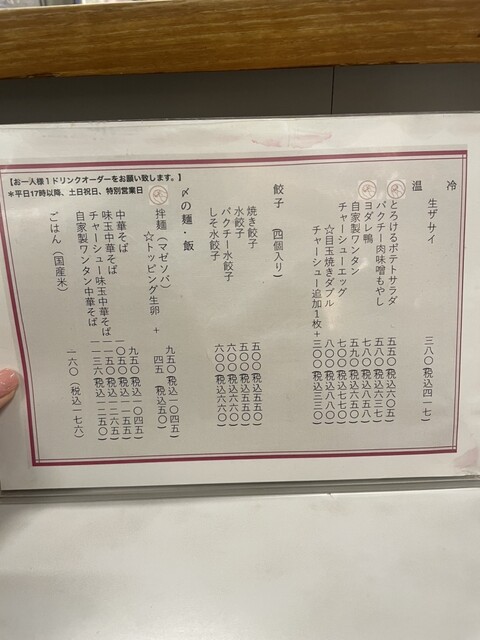 【お一人様1ドリンクオーダーをお願い致します。】
＊平日17時以降、土日祝日、特別営業日
冷
生ザサイ 三八〇（税込四一七）
温
とろけるポテトサラダ 五五〇（税込六〇五）
パクチー肉味噌もやし 五八〇（税込六三七）
ヨダレ鴨 七八〇（税込八五八）
自家製ワンタン 五九〇（税込六四五）
チャーシューエッグ 七〇〇（税込七七〇）
☆目玉焼きダブル 八〇〇（税込八八〇）
チャーシュー追加1枚＋三〇〇（税込三三〇）
餃子 （四個入り）
焼き餃子 五〇〇（税込五五〇）
水餃子 五〇〇（税込五五〇）
パクチー水餃子 六〇〇（税込六六〇）
しそ水餃子 六〇〇（税込六六〇）
〆の麺・飯
拌麺（マゼソバ） 九五〇（税込一〇四五）
☆トッピング生卵 ＋ 四五 （税込五〇）
中華そば 九五〇（税込一〇四五）
味玉中華そば 一〇五〇（税込一一五五）
チャーシュー味玉中華そば 一一五〇（税込一二六五）
自家製ワンタン中華そば 一一三六（税込一二五〇）
ごはん（国産米） 一六〇（税込一七六）